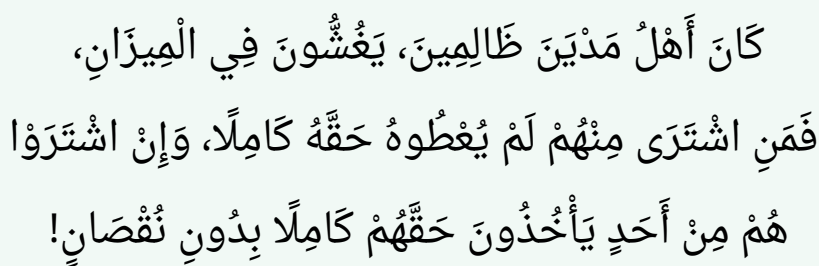 كَانَ أَهْلُ مَدْيَنَ ظَالِمِينَ، يَغُشُّونَ فِي الْمِيزَانِ،
فَمَنِ اشْتَرَى مِنْهُمْ لَمْ يُعْطُوهُ حَقَّهُ كَامِلًا، وَإِنْ اشْتَرَوْا
هُمْ مِنْ أَحَدٍ يَأْخُذُونَ حَقَّهُمْ كَامِلًا بِدُونِ نُقْصَانٍ!